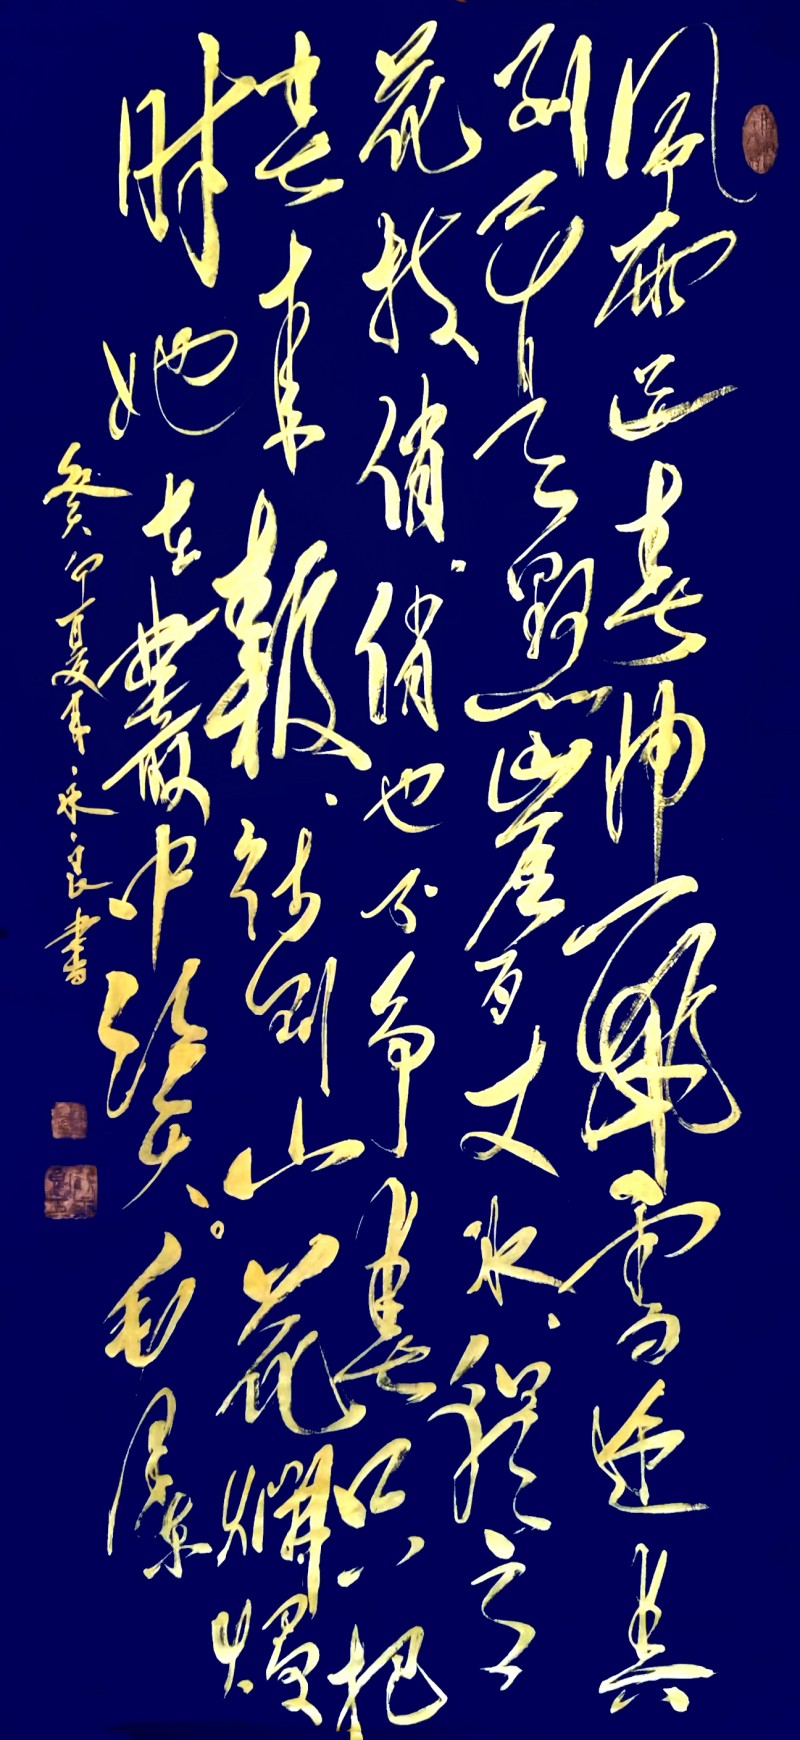 風雨送春歸飛雪迎春
到已是懸崖百丈冰猶有
花枝俏俏也不爭春只把
春來報待到山花爛熳
時她在叢中笑毛澤東
癸卯夏永良書